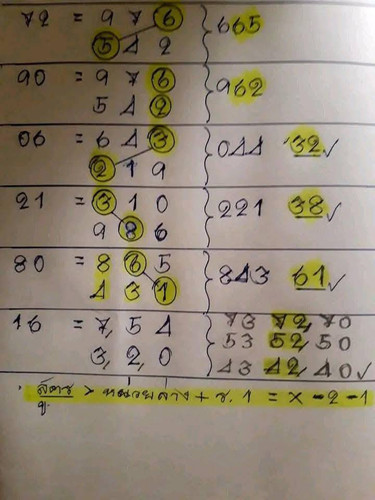 72 = 9 7 6 665
5 4 2
90 = 9 7 6 962
5 4 2
06 = 6 4 3 044 32 ✓
2 1 9
21 = 3 1 0 221 38 ✓
9 8 6
80 = 8 6 5 843 61 ✓
4 3 1
16 = 7, 5 4 73 72, 70
53 52, 50
3, 2, 0 43 42, 40 ✓
สูตร > หน่วยล่าง + ร. 1 = x - 2 - 1